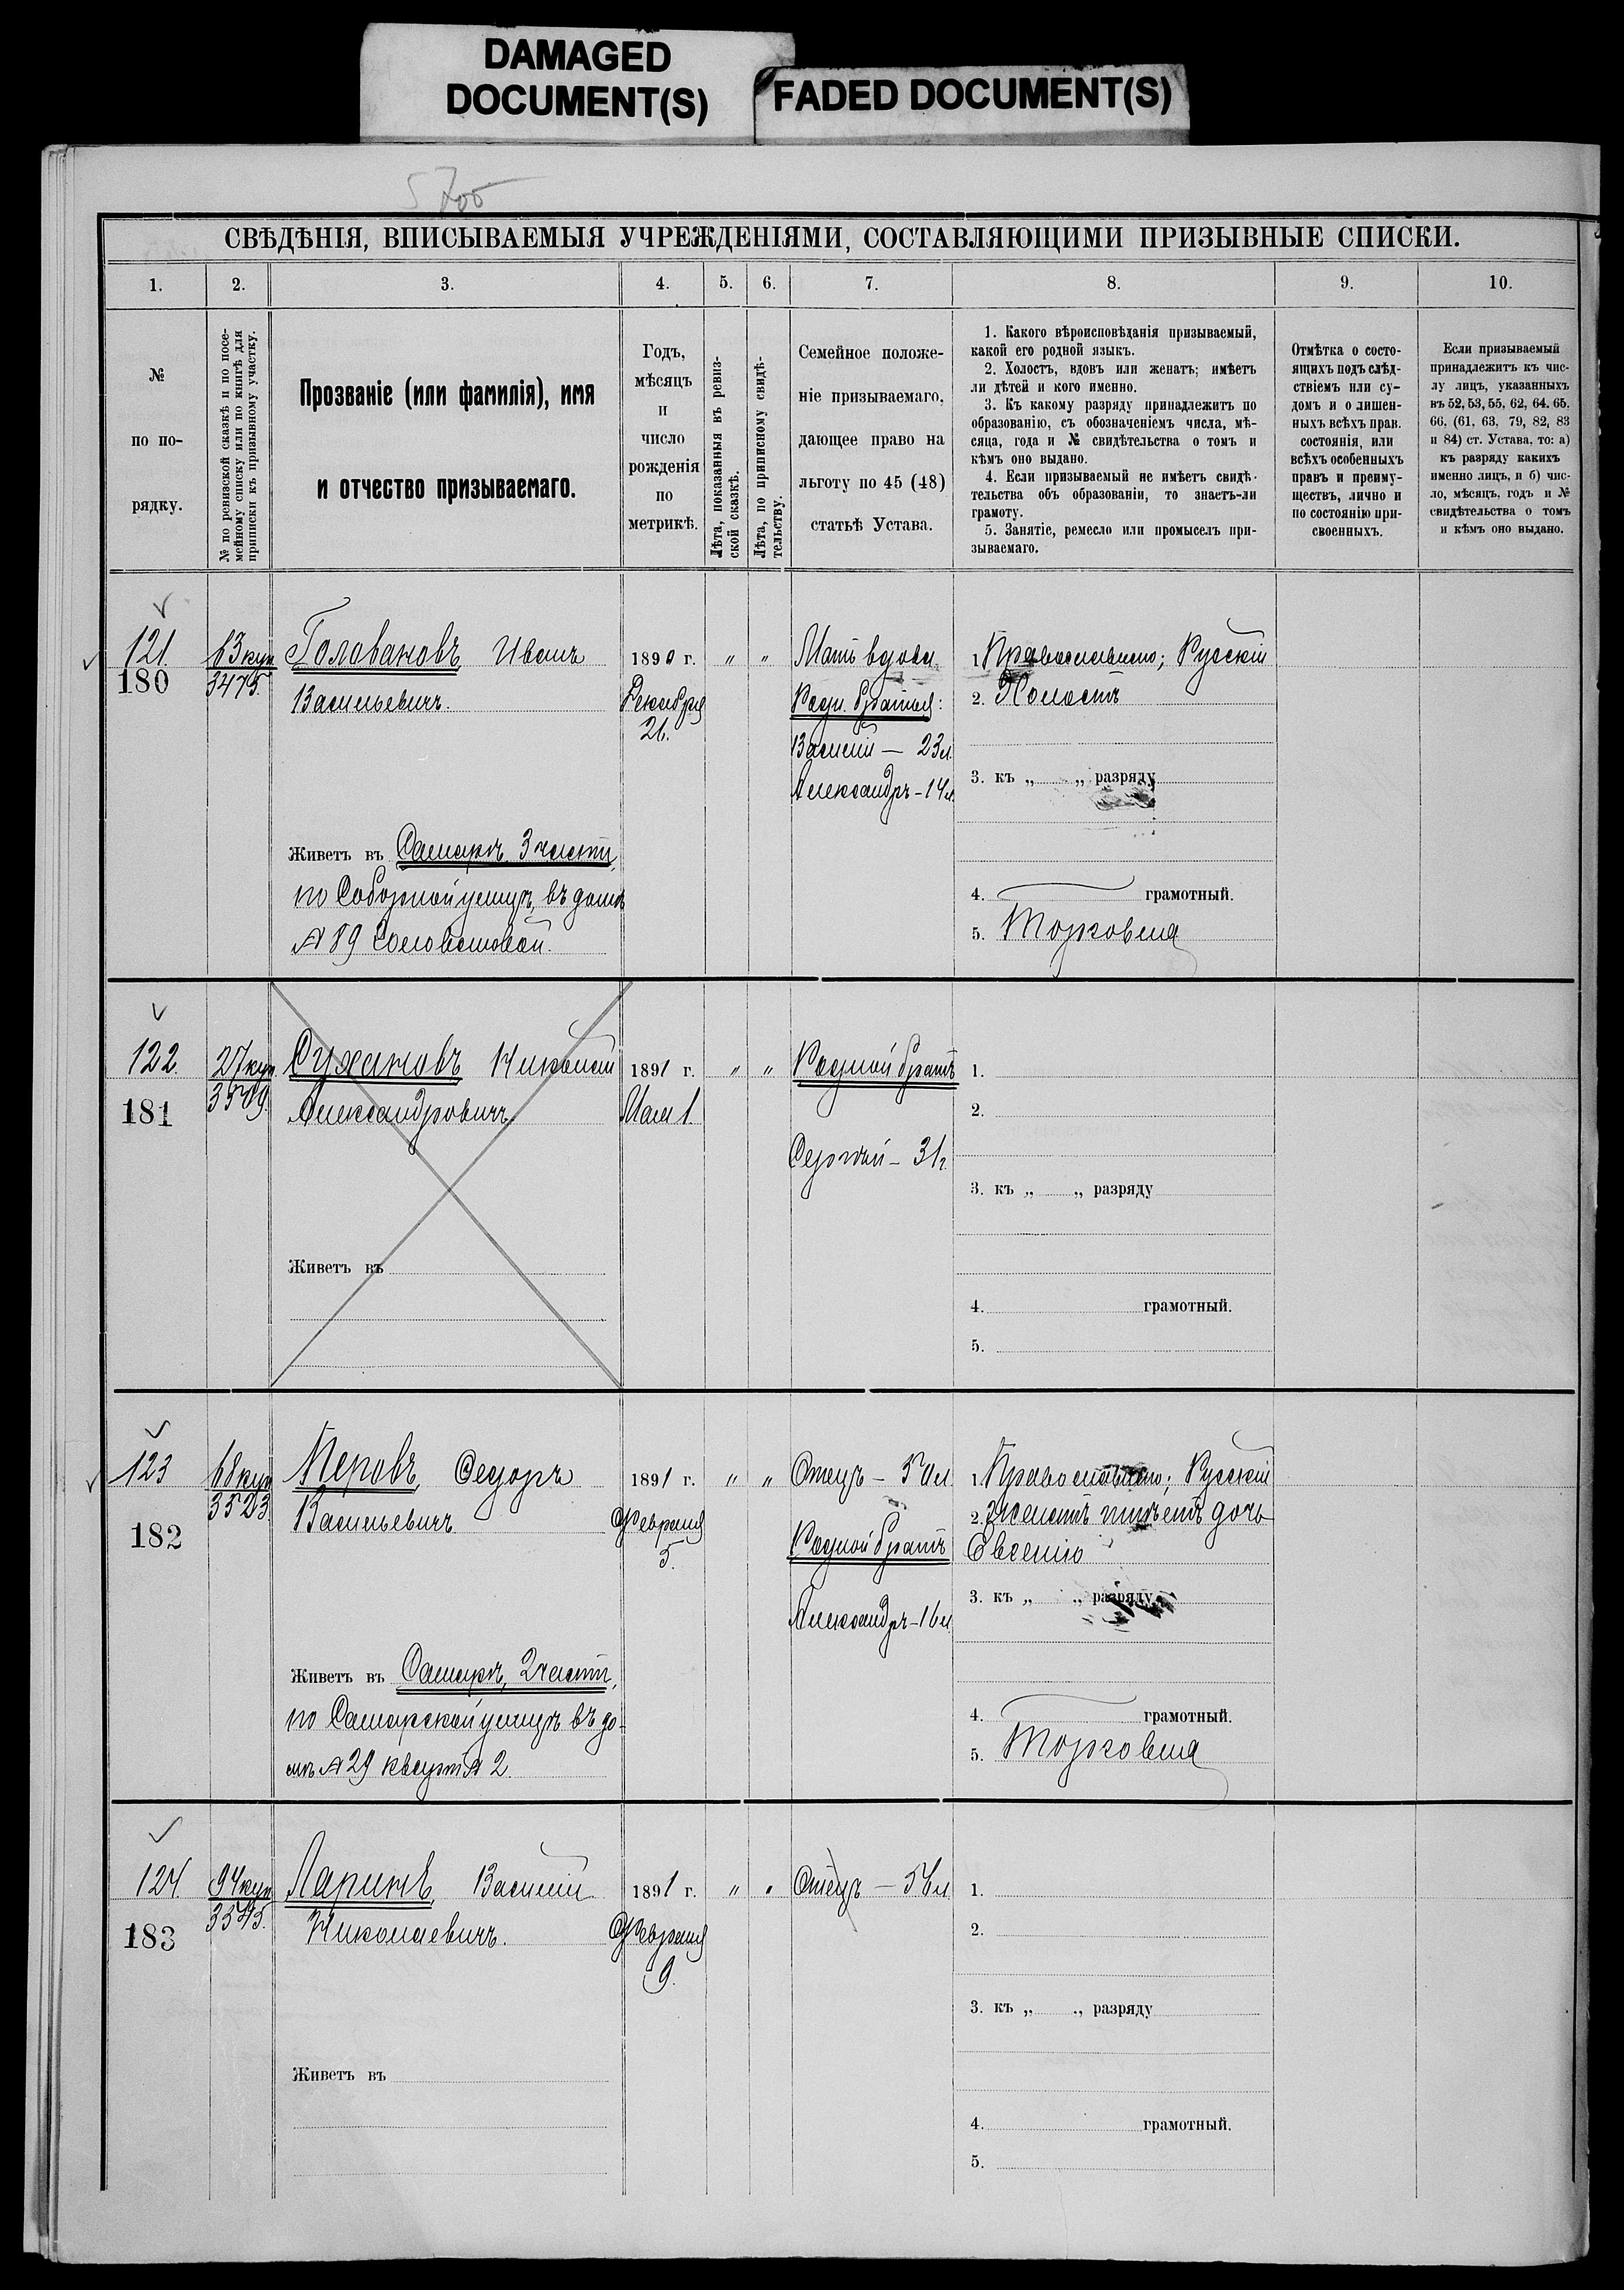 DAMAGED
DOCUMENT(S)
FADED DOCUMENT(S)
СВѢДѢНІЯ, ВПИСЫВАЕМЫЯ УЧРЕЖДЕНІЯМИ, СОСТАВЛЯЮЩИМИ ПРИЗЫВНЫЕ СПИСКИ.
1.
2.
3.
4.
5.
6.
7.
8.
9.
10.
№
по по-
рядку.
№ по ревизской сказкѣ и по посе-
мейному списку или по книгѣ для
приписки къ призывному участку.
Прозваніе (или фамилія), имя
и отчество призываемаго.
Годъ,
мѣсяцъ
и
число
рожденія
по
метрикѣ.
Лѣта, показанныя въ ревиз-
ской сказкѣ.
Лѣта, по приписному свидѣ-
тельству.
Семейное положе-
ніе призываемаго,
дающее право на
льготу по 45 (48)
статьѣ Устава.
1. Какого вѣроисповѣданія призываемый,
какой его родной языкъ.
2. Холостъ, вдовъ или женатъ; имѣетъ
ли дѣтей и кого именно.
3. Къ какому разряду принадлежитъ по
образованію, съ обозначеніемъ числа, мѣ-
сяца, года и № свидѣтельства о томъ и
кѣмъ оно выдано.
4. Если призываемый не имѣетъ свидѣ-
тельства объ образованіи, то знаетъ-ли
грамоту.
5. Занятіе, ремесло или промыселъ при-
зываемаго.
Отмѣтка о состо-
ящихъ подъ слѣд-
ствіемъ или су-
домъ и о лишен-
ныхъ всѣхъ прав.
состоянія, или
всѣхъ особенныхъ
правъ и преиму-
ществъ, лично и
по состоянію при-
своенныхъ.
Если призываемый
принадлежитъ къ чис-
лу лицъ, указанныхъ
въ 52, 53, 55, 62, 64. 65.
66. (61, 63, 79, 82, 83
и 84) ст. Устава, то: а)
къ разряду какихъ
именно лицъ, и б) чис-
ло, мѣсяцъ, годъ и №
свидѣтельства о томъ
и кѣмъ оно выдано.
121.
180
63 куп
3475.
Головановъ Иванъ
Васильевичъ.
Живетъ въ Самарѣ, 3 части,
по Соборной улицѣ, въ домѣ
№ 89
1890 г.
Декабря
21.
" "
Мать вдова
Родн. братья:
Василій — 23 л.
Александръ - 14 л.
1. Православнаго; Русскій
2. Холостъ
3. къ „ „ разряду
4. грамотный.
5. Торговля
122.
181
27 куп.
3509.
Сухановъ Николай
Александровичъ
Живетъ въ
1891 г.
Мая 1.
" "
Родной братъ
Сергѣй — 31 г.
1.
2.
3. къ „ „ разряду
4. грамотный.
5.
123
182
68 куп
3523.
Перовъ, Ѳедоръ
Васильевичъ
Живетъ въ Самарѣ, 2 части,
по Самарской улицѣ въ до-
мѣ № 29 кварт. № 2.
1891 г.
Февраля
5.
" "
Отецъ — 50 л.
Родной братъ
Александръ - 16 л.
1. Православнаго; Русскій
2. Женатъ имѣетъ дочь
Евгенію
3. къ „ „ разряду
4. грамотный.
5. Торговля
124.
183
94 куп
3545.
Ларинъ, Василій
Николаевичъ.
Живетъ въ
1891 г.
Февраля
9.
" "
Отецъ — 54 л.
1.
2.
3. къ „ „ разряду
4. грамотный.
5.